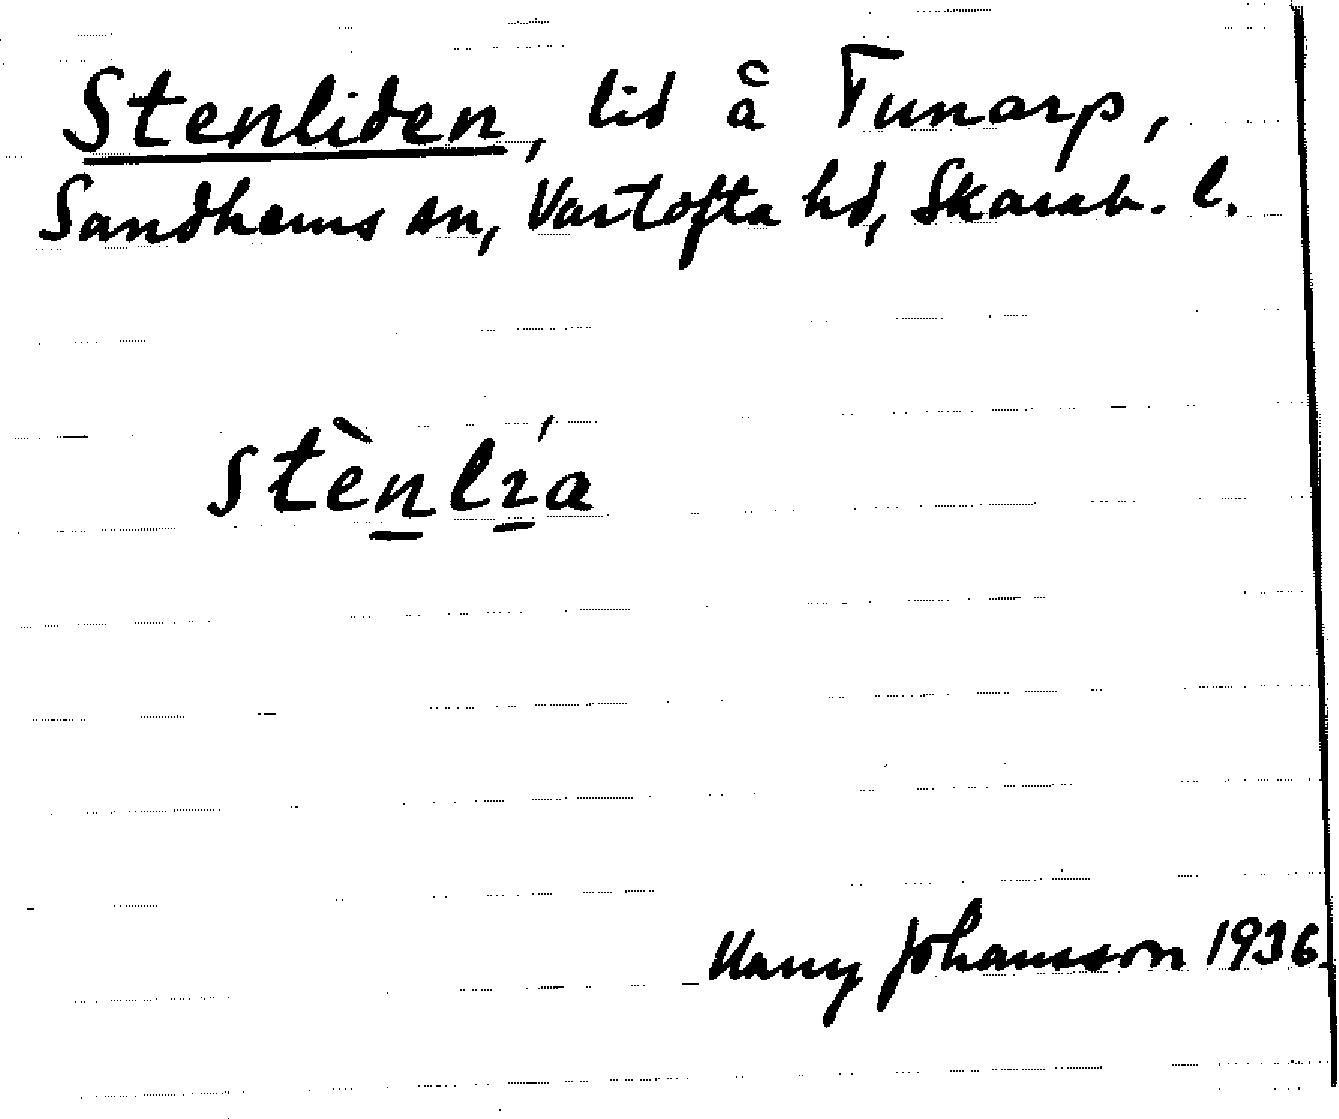 Stenliden, lid å Tunarp,
Sandhems sn, Vartofta hd, Skarab. l.
stènlı́a
Harry Johansson 1936.